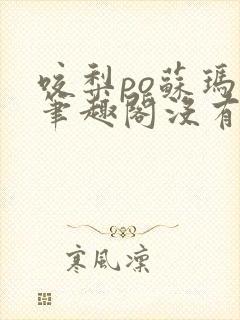 咬梨po蘇瑪
筆趣閣沒有
寒風凜